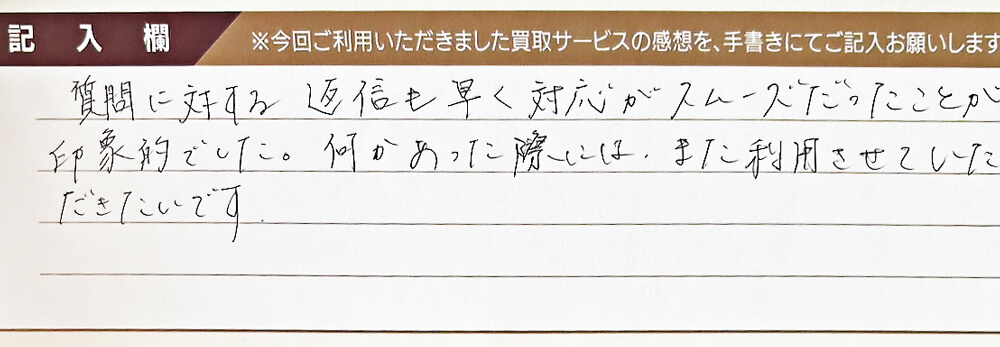 記入欄
※今回ご利用いただきました買取サービスの感想を、手書きにてご記入お願いします
質問に対する返信も早く対応がスムーズだったことが
印象的でした。何かあった際には、また利用させていた
だきたいです.